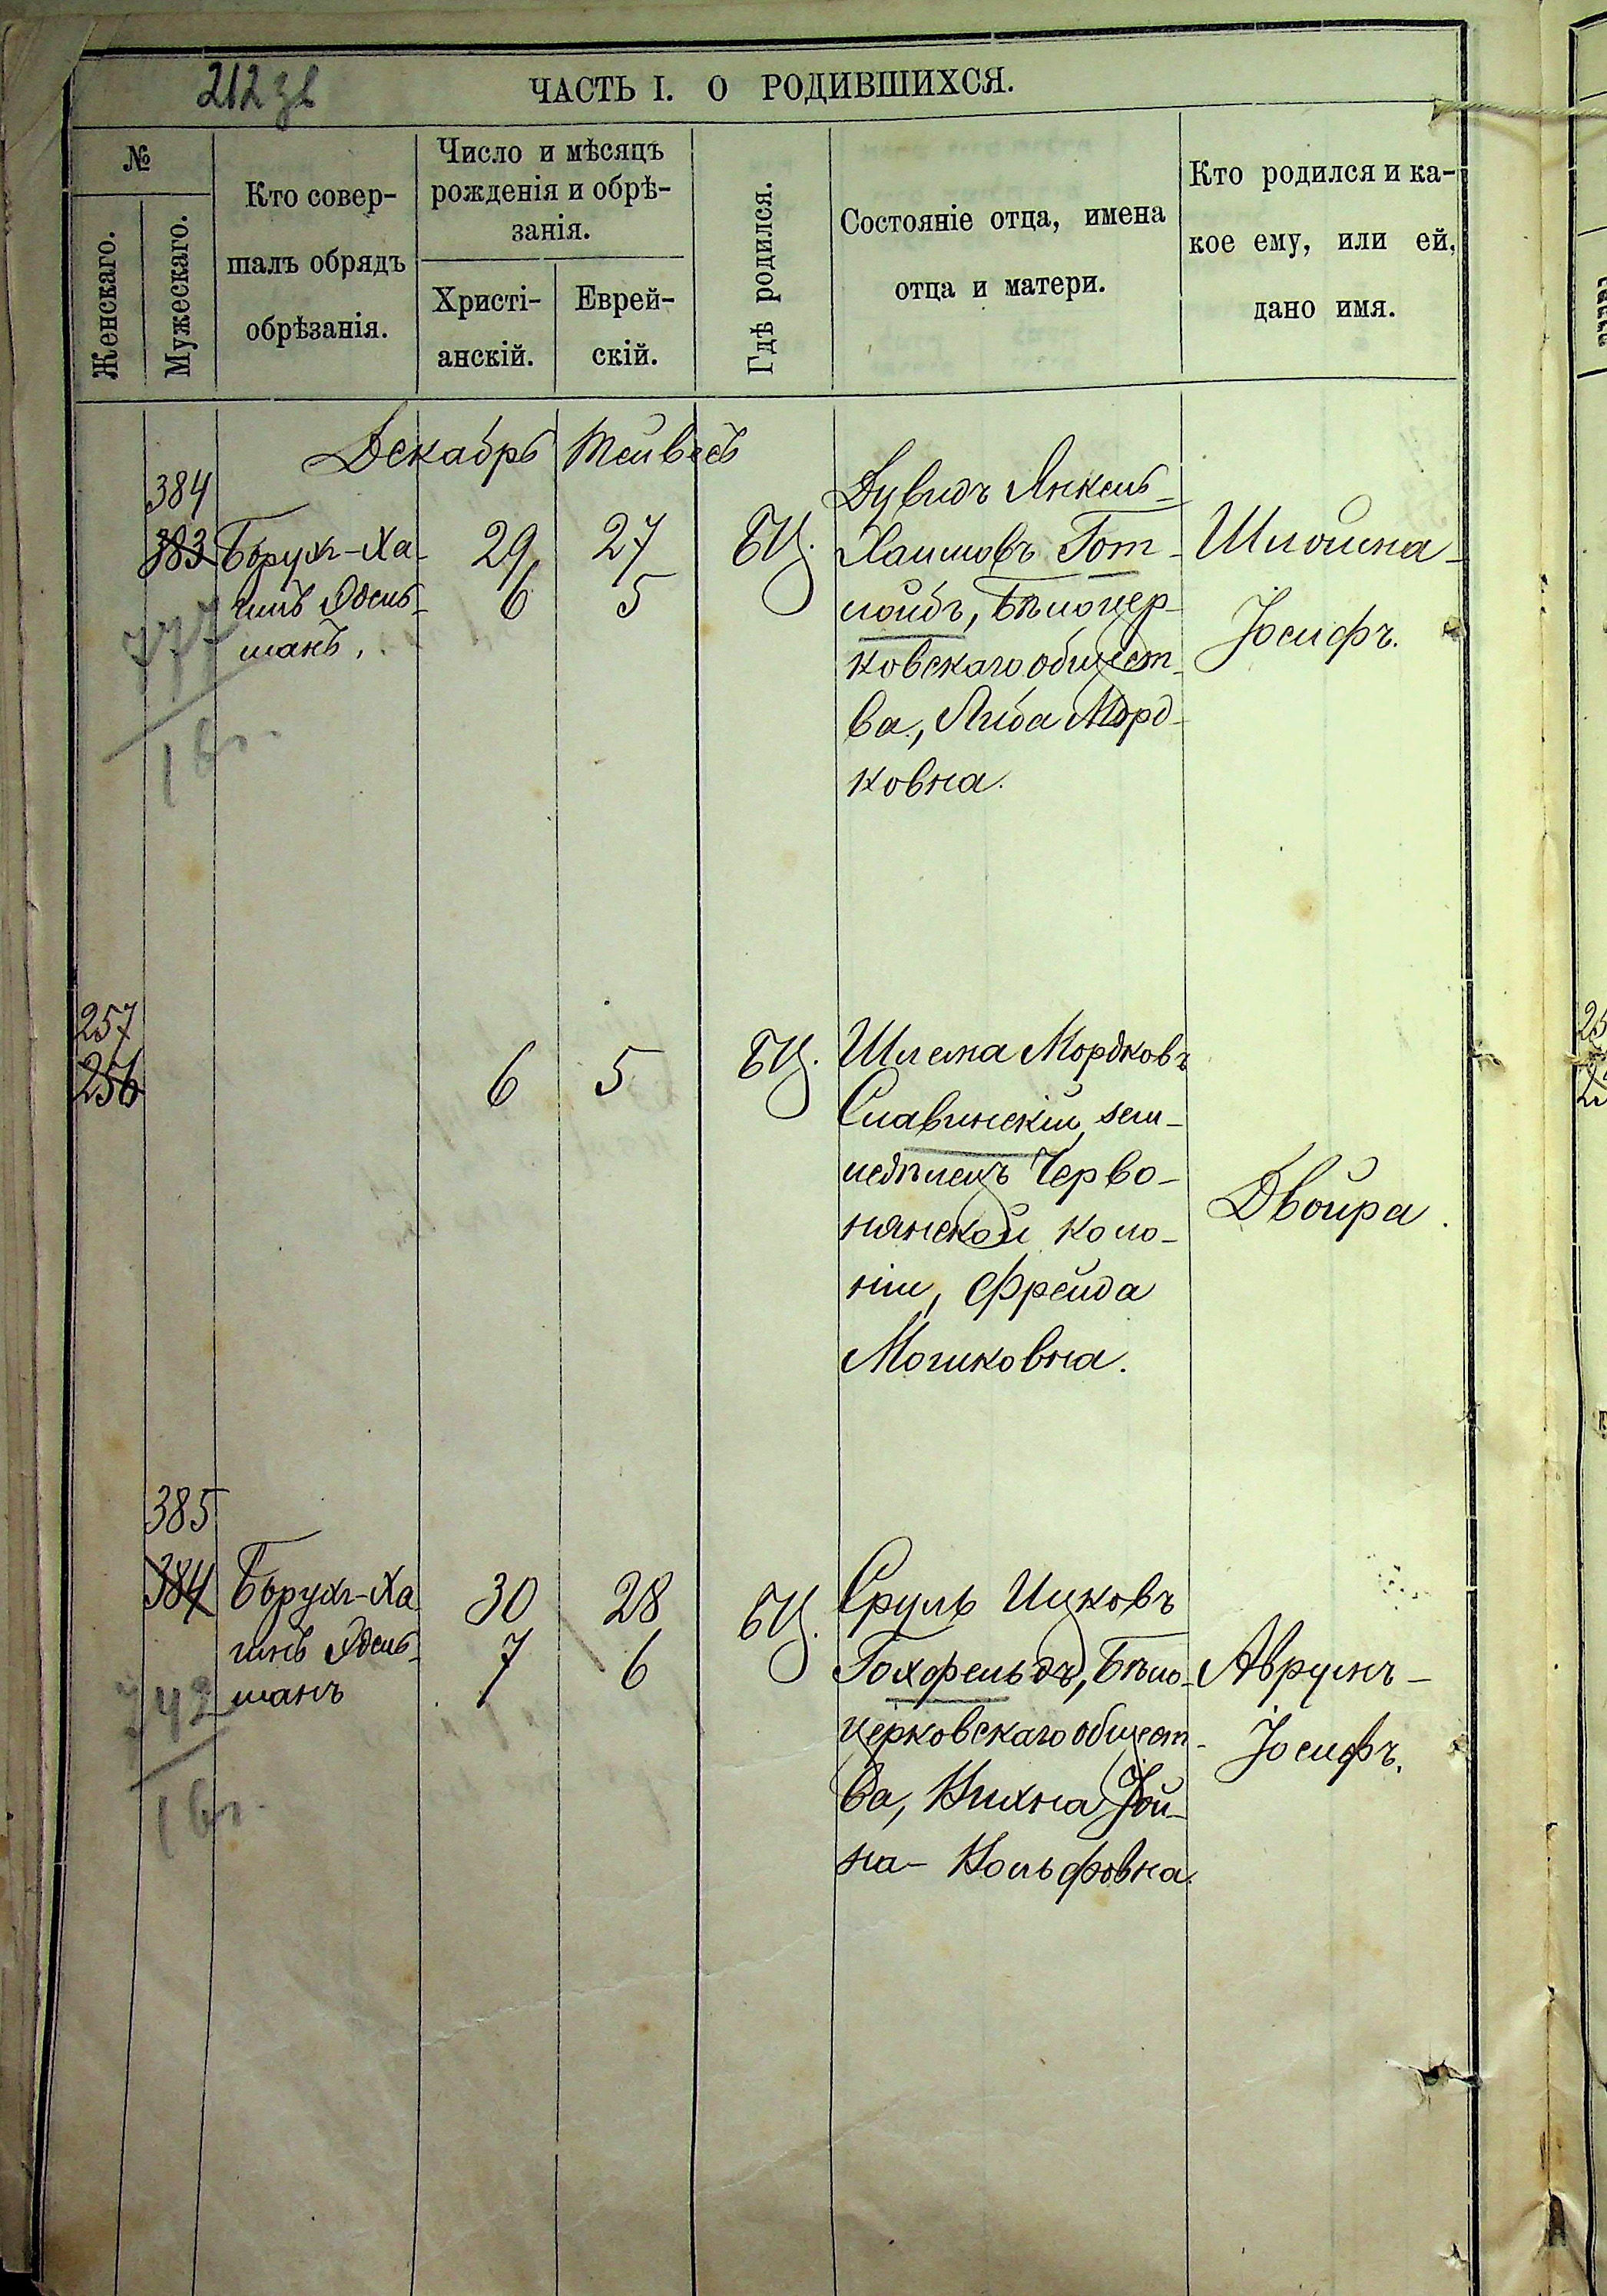 212 зв
ЧАСТЬ I. О РОДИВШИХСЯ.
№
Женскаго.
Мужескаго.
Кто совер-
шалъ обрядъ
обрѣзанія.
Число и мѣсяцъ
рожденія и обрѣ-
занія.
Христі-
анскій.
Еврей-
скій.
Гдѣ родился.
Состояніе отца, имена
отца и матери.
Кто родился и ка-
кое ему, или ей,
дано имя.
Декабрь Тейвесъ
384
383
Борухъ-Ха-
имъ Эдель-
манъ.
29
6
27
5
БЦ.
Дувидъ Янкель-
Хаимовъ Гот-
лойбъ, Бѣлоцер-
ковскаго общест-
ва, Либа Морд-
ковна.
Шлойма-
Іосифъ.
1 вг.
257
256
6
5
БЦ.
Шлема Мордковъ
Славинскій, зем-
ледѣлецъ Черво-
нянской коло-
ніи, Фрейда
Мошковна.
Двойра.
385
384
Борухъ-Ха
имъ Эдель-
манъ
30
7
28
6
БЦ.
Сруль Ицковъ
Гохфельдъ, Бѣло-
церковскаго общест-
ва, Кихна Іой-
на-Вольфовна.
Аврумъ-
Іосифъ.
742
1 вг.